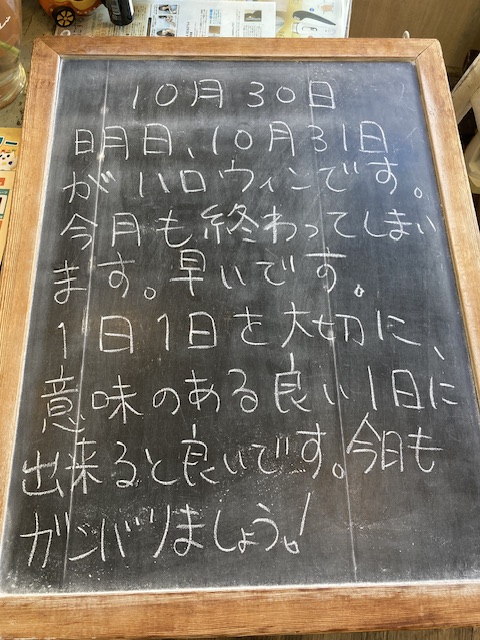 10月30日
明日、10月31日
がハロウィンです。
今月も終わってしまい
ます。早いです。
1日1日を大切に、
意味のある良い1日に
出来ると良いです。今日も
ガンバりましょう!